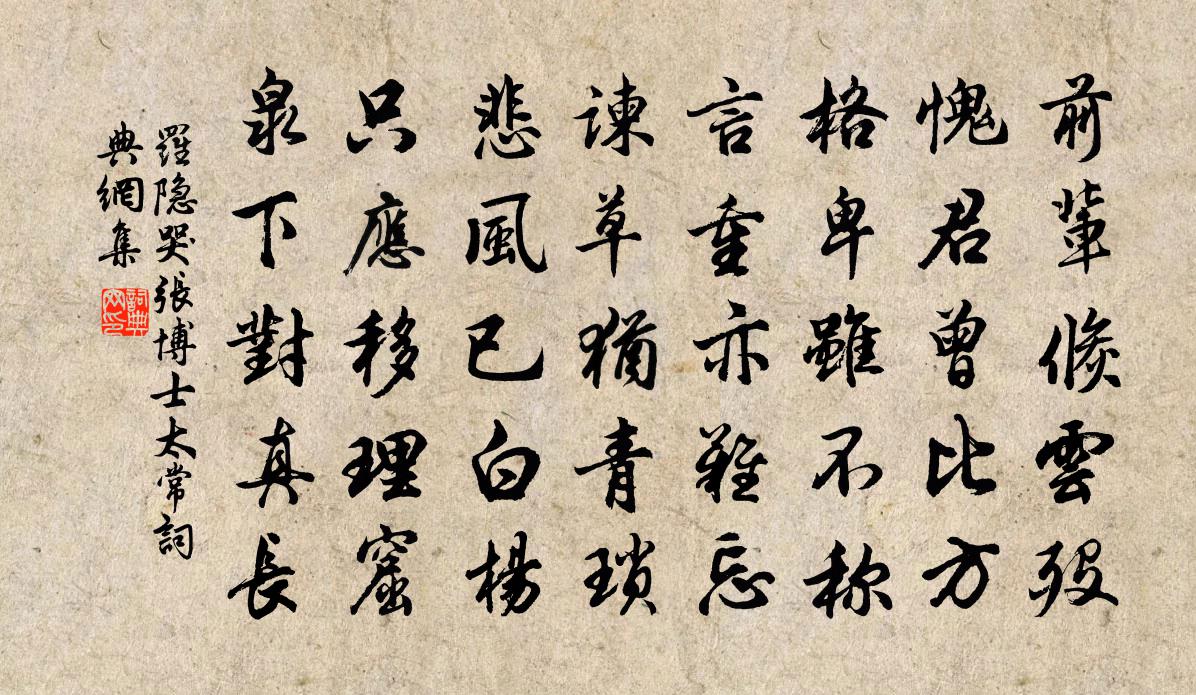 前輩倏雲歿
愧君曾比方
格卑雖不称
言重亦難忘
諫草猶青瑣
悲風已白楊
只應移理窟
泉下對真長
羅隐哭張博士太常詞
典網集
詞典
网印